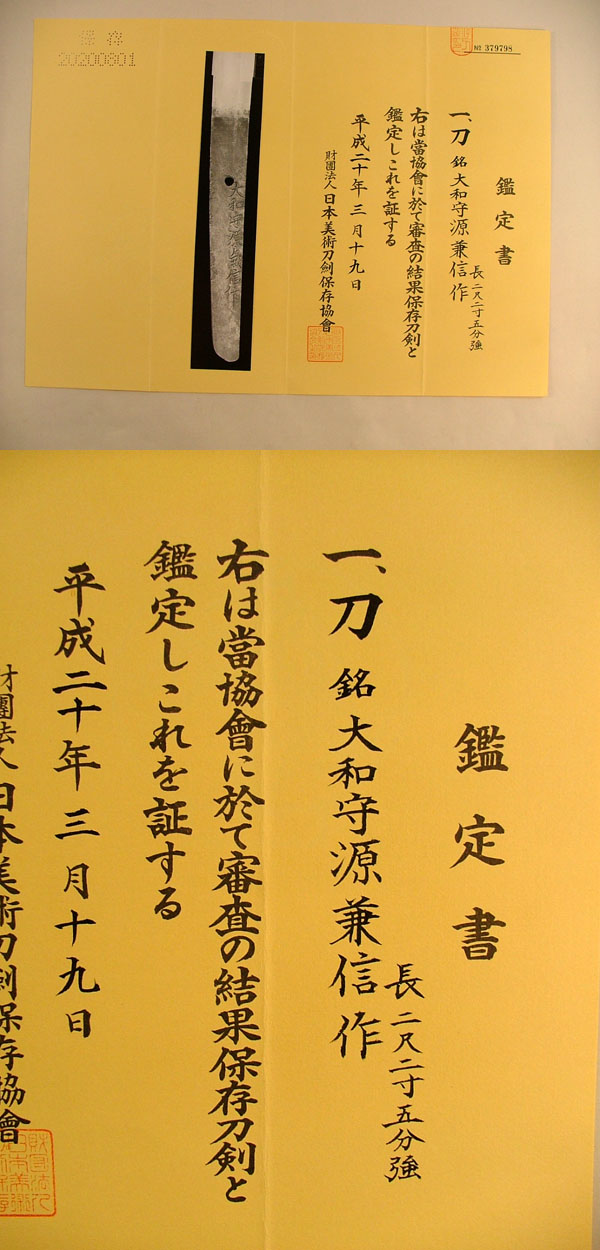 鑑定書
一、刀 銘 大和守源兼信作
長二尺二寸五分強
右は當協會に於て審査の結果保存刀剣と
鑑定しこれを証する
平成二十年三月十九日
財團法人日本美術刀劍保存協會
№ 379798
保存
20200801
大和守源兼信作
鑑定書
一、刀 銘 大和守源兼信作
長二尺二寸五分強
右は當協會に於て審査の結果保存刀剣と
鑑定しこれを証する
平成二十年三月十九日
財團法人日本美術刀劍保存協會